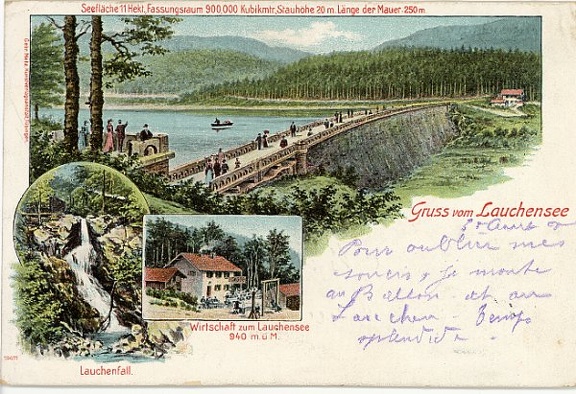 Seefläche 11 Hekt., Fassungsraum 900.000 Kubikmtr, Stauhöhe 20 m. Länge der Mauer 250 m.
Gruss vom Lauchensee
Pour oublier mes
soucis, je monte
au Ballon et au
Lauchen
splendide.
Wirtschaft zum Lauchensee
940 m. ü. M.
Lauchenfall.